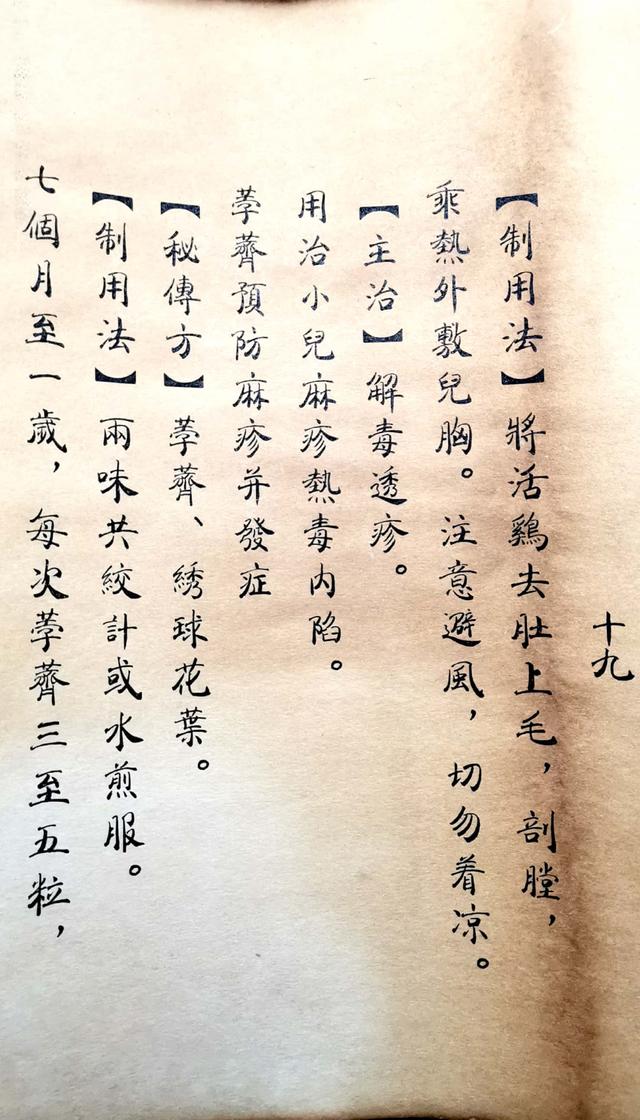 十九
【制用法】將活鷄去肚上毛，剖膛，
乘熱外敷兒胸。注意避風，切勿着凉。
【主治】解毒透疹。
用治小兒麻疹熱毒内陷。
荸薺預防麻疹并發症
【秘傳方】荸薺、綉球花葉。
【制用法】兩味共絞計或水煎服。
七個月至一歲，每次荸薺三至五粒，